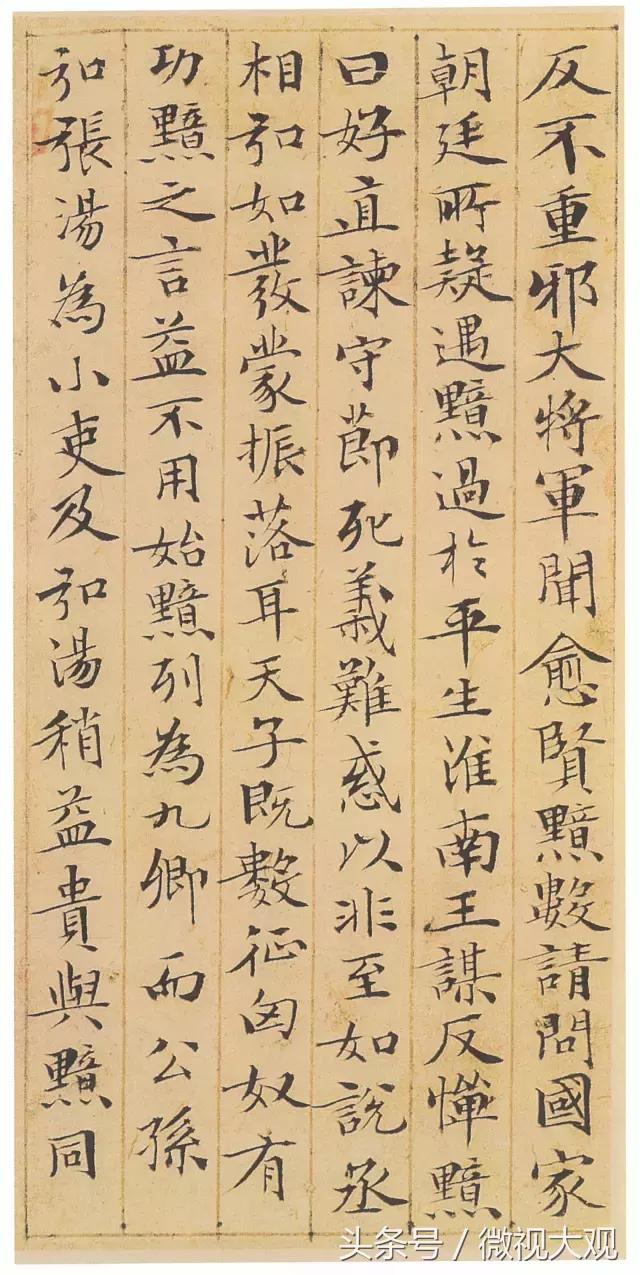 反不重邪大將軍聞愈賢黯數請問國家
朝廷所疑遇黯過於平生淮南王謀反憚黯
曰好直諫守節死義難惑以非至如說丞
相弘如發蒙振落耳天子既數征匈奴有
功黯之言益不用始黯列為九卿而公孫
弘張湯為小吏及弘湯稍益貴與黯同
头条号 / 微视大观